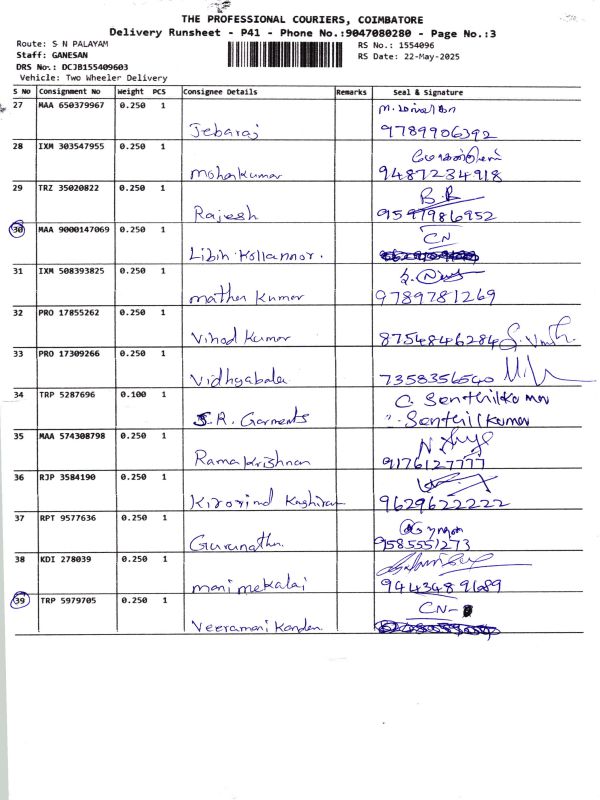 THE PROFESSIONAL COURIERS, COIMBATORE
Delivery Runsheet - P41 - Phone No.:9047080280 - Page No.:3
Route: S N PALAYAM
RS No.: 1554096
Staff: GANESAN
RS Date: 22-May-2025
DRS No.: DCJB155409603
Vehicle: Two Wheeler Delivery
S No Consignment No Weight PCS Consignee Details Remarks Seal & Signature
27 MAA 650379967 0.250 1
Jebaraj 9789906392
28 IXM 303547955 0.250 1
Mohankumar 9487234918
29 TRZ 35020822 0.250 1 B.R
Rajesh 9597986952
30 MAA 9000147069 0.250 1 CN
Libin Kollannor.
31 IXM 508393825 0.250 1
mathan kumar 9789781269
32 PRO 17855262 0.250 1
Vinod Kumar 8754846284
33 PRO 17309266 0.250 1
Vidhyabala 7358356540
34 TRP 5287696 0.100 1 C. Senthilkumar
S.R. Garments Senthilkumar
35 MAA 574308798 0.250 1
Rama Krishnan 9176127777
36 RJP 3584190 0.250 1
9629622222
37 RPT 9577636 0.250 1
Gurunathn. 9585551273
38 KDI 278039 0.250 1
manimekalai 9443489689
39 TRP 5979705 0.250 1 CN-
Veeramani Kanden.